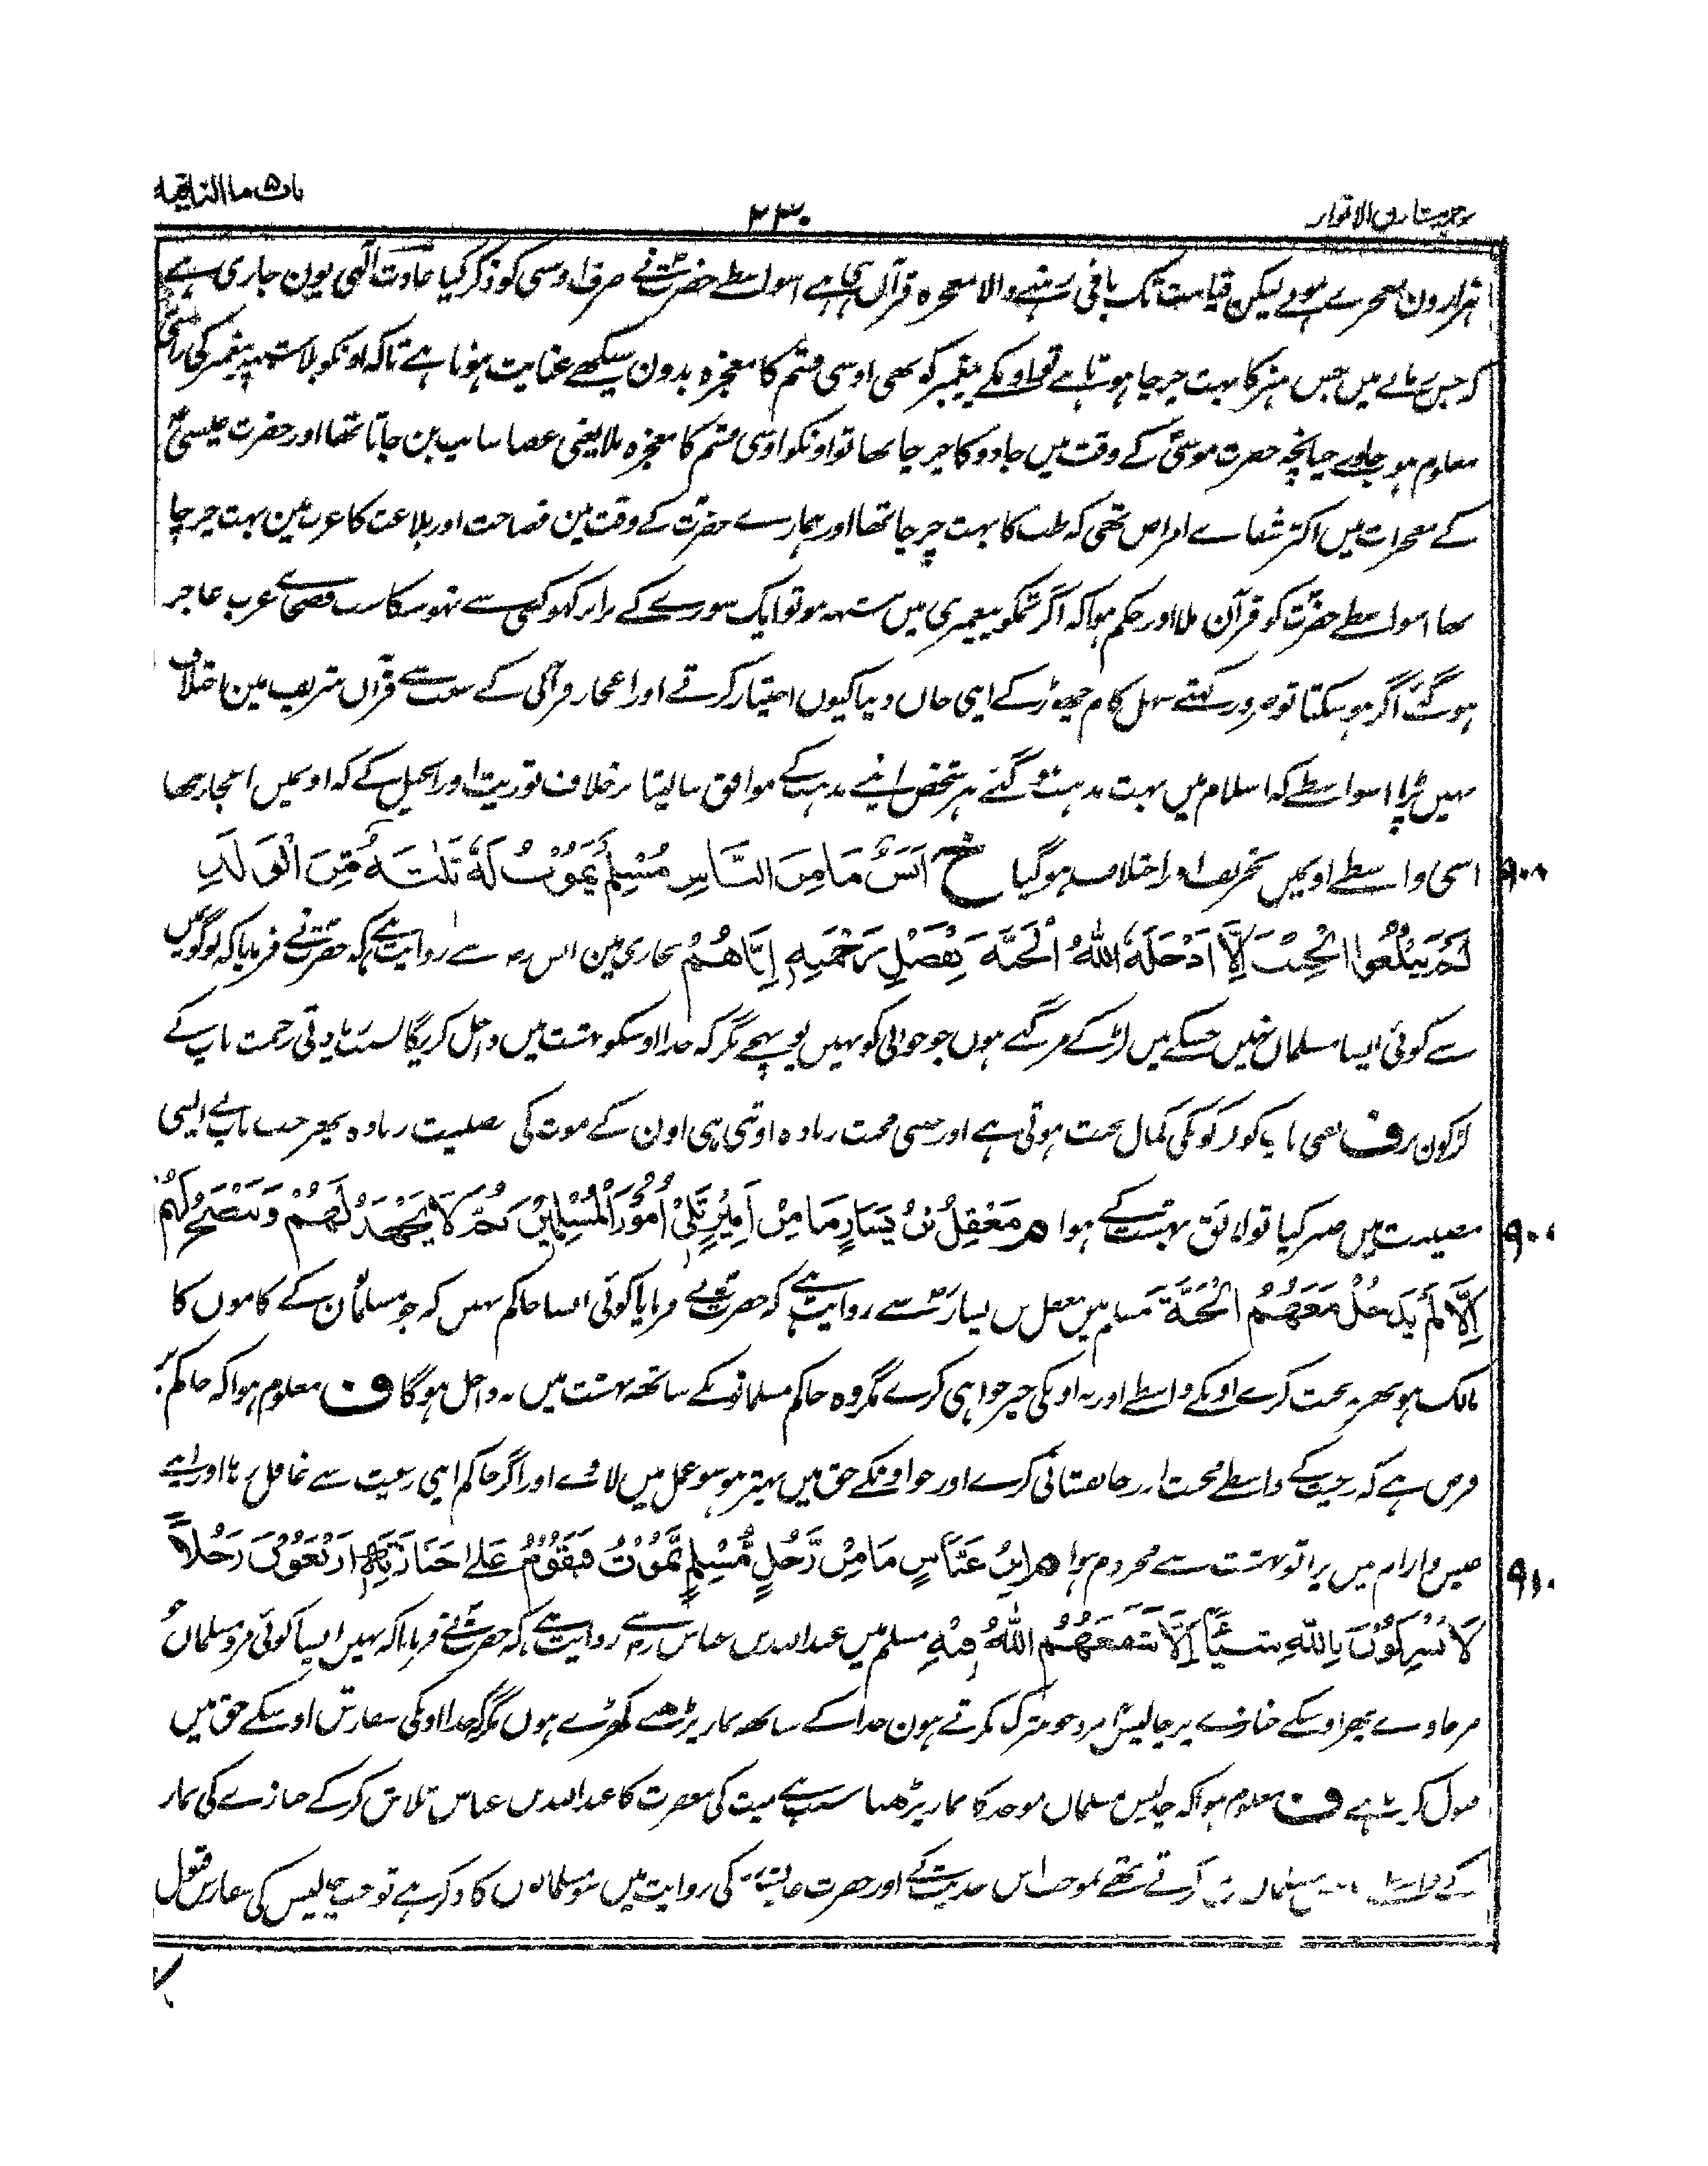 باب ۵ ما النافیہ
۲۳۰
ترجمہ مشارق الانوار
ہزارون معجزے ہوے لیکن قیامت تک باقی رہنے والا معجزہ قرآن ہی ہے اسواسطے حضرتؐ نے صرف اوسی کو ذکر کیا عادت الٰہی یون جاری ہے
کہ جس زمانے میں جس ہنر کا بہت چرچا ہوتا ہے تو اونکے پیغمبر کو بھی اوسی قسم کا معجزہ بدون سیکھے عنایت ہوتا ہے تاکہ اونکو بلا شبہہ پیغمبر کی راستی
معلوم ہو جاوے چنانچہ حضرت موسیٰؑ کے وقت میں جادو کا چرچا تھا تو اونکو اوسی قسم کا معجزہ ملا یعنی عصا سانپ بن جاتا تھا اور حضرت عیسیٰؑ
کے معجزات میں اکثر شفاے امراض تھی کہ طب کا بہت چرچا تھا اور ہمارے حضرتؐ کے وقت مین فصاحت اور بلاغت کا عرب مین بہت چرچا
تھا اسواسطے حضرتؐ کو قرآن ملا اور حکم ہوا کہ اگر تمکو پیغمبری میں شبہہ ہو تو ایک سورے کے برابر کہو کسی سے نہوسکا سب فصحاے عرب عاجز
ہو گئے اگر ہو سکتا تو ضرور کہتے سہل کام چھوڑ کے اپنی جان دینا کیوں اختیار کرتے اور اعجاز قرآنی کے سبب سے قرآن شریف مین اختلاف
نہیں پڑا اسواسطے کہ اسلام میں بہت مذہب ہو گئے ہر شخص اپنے مذہب کے موافق بنا لیتا برخلاف توریت اور انجیل کے کہ اونمیں اعجاز نتھا
۹۰۸ اسی واسطے اونمیں تحریف اور اختلاف ہو گیا خ اَنَسٌ مَا مِنَ النَّاسِ مُسْلِمٌ یَمُوْتُ لَهٗ ثَلٰثَةٌ مِّنَ الْوَلَدِ
لَمْ یَبْلُغُوا الْحِنْثَ اِلَّا اَدْخَلَهُ اللّٰهُ الْجَنَّةَ بِفَضْلِ رَحْمَتِهٖ اِیَّاهُمْ بخاری مین انس رض سے روایت ہے کہ حضرتؐ نے فرمایا کہ لوگوں میں
سے کوئی ایسا مسلمان نہیں جسکے تین لڑکے مر گئے ہوں جو جوانی کو نہیں پہنچے مگر کہ خدا اوسکو بہشت میں داخل کریگا بسبب زیادتی رحمت باپ کے
لڑکون پر ف یعنی ما باپ کو لڑکونکی کمال محبت ہوتی ہے اور جیسی محبت زیادہ اوتنی ہی اون کے موت کی مصیبت زیادہ پھر جب باپ نے ایسی
۹۰۹ مصیبت میں صبر کیا تو لائق بہشت کے ہوا م مَعْقِلُ بْنُ یَسَارٍ مَا مِنْ اَمِیْرٍ یَّلِیْ اُمُوْرَ الْمُسْلِمِیْنَ ثُمَّ لَا یَجْهَدُ لَهُمْ وَیَنْصَحُ لَهُمْ
اِلَّا لَمْ یَدْخُلْ مَعَهُمُ الْجَنَّةَ مسلم میں معقل بن یسار رض سے روایت ہے کہ حضرتؐ نے فرمایا کوئی ایسا حاکم نہیں کہ جو مسلمانون کے کاموں کا
مالک ہو پھر نہ محنت کرے اونکے واسطے اور نہ اونکی خیر خواہی کرے مگر وہ حاکم مسلمانونکے ساتھ بہشت میں نہ داخل ہوگا ف معلوم ہوا کہ حاکم پر
فرض ہے کہ رعیت کے واسطے محنت اور جانفشانی کرے اور جو اونکے حق میں بہتر ہو سو عمل میں لاوے اور اگر حاکم اپنی رعیت سے غافل رہا اور اپنے
۹۱۰ عیش و آرام میں پڑا تو بہشت سے محروم ہوا م اِبْنُ عَبَّاسٍ مَا مِنْ رَّجُلٍ مُّسْلِمٍ یَّمُوْتُ فَیَقُوْمُ عَلٰی جَنَازَتِهٖ اَرْبَعُوْنَ رَجُلًا
لَا یُشْرِکُوْنَ بِاللّٰهِ شَیْئًا اِلَّا شَفَّعَهُمُ اللّٰهُ فِیْهِ مسلم میں عبداللہ بن عباس رض سے روایت ہے کہ حضرتؐ نے فرمایا کہ نہیں ایسا کوئی مرد مسلمان
مر جاوے پھر اوسکے جنازے پر چالیس مرد جو شرک نکرتے ہون خدا کے ساتھ نماز پڑھنے کھڑے ہوں مگر کہ خدا اونکی سفارش اوسکے حق میں
قبول کرتا ہے ف معلوم ہوا کہ چالیس مسلمان موحد کا نماز پڑھنا سبب ہے میت کی مغفرت کا عبداللہ بن عباس تلاش کرکے جنازے کی نماز
کے واسطے مسلمان کرتے تھے بموجب اس حدیث کے اور حضرت عایشہ کی روایت میں سو مسلمانوں کا ذکر ہے تو جب چالیس کی سفارش قبول